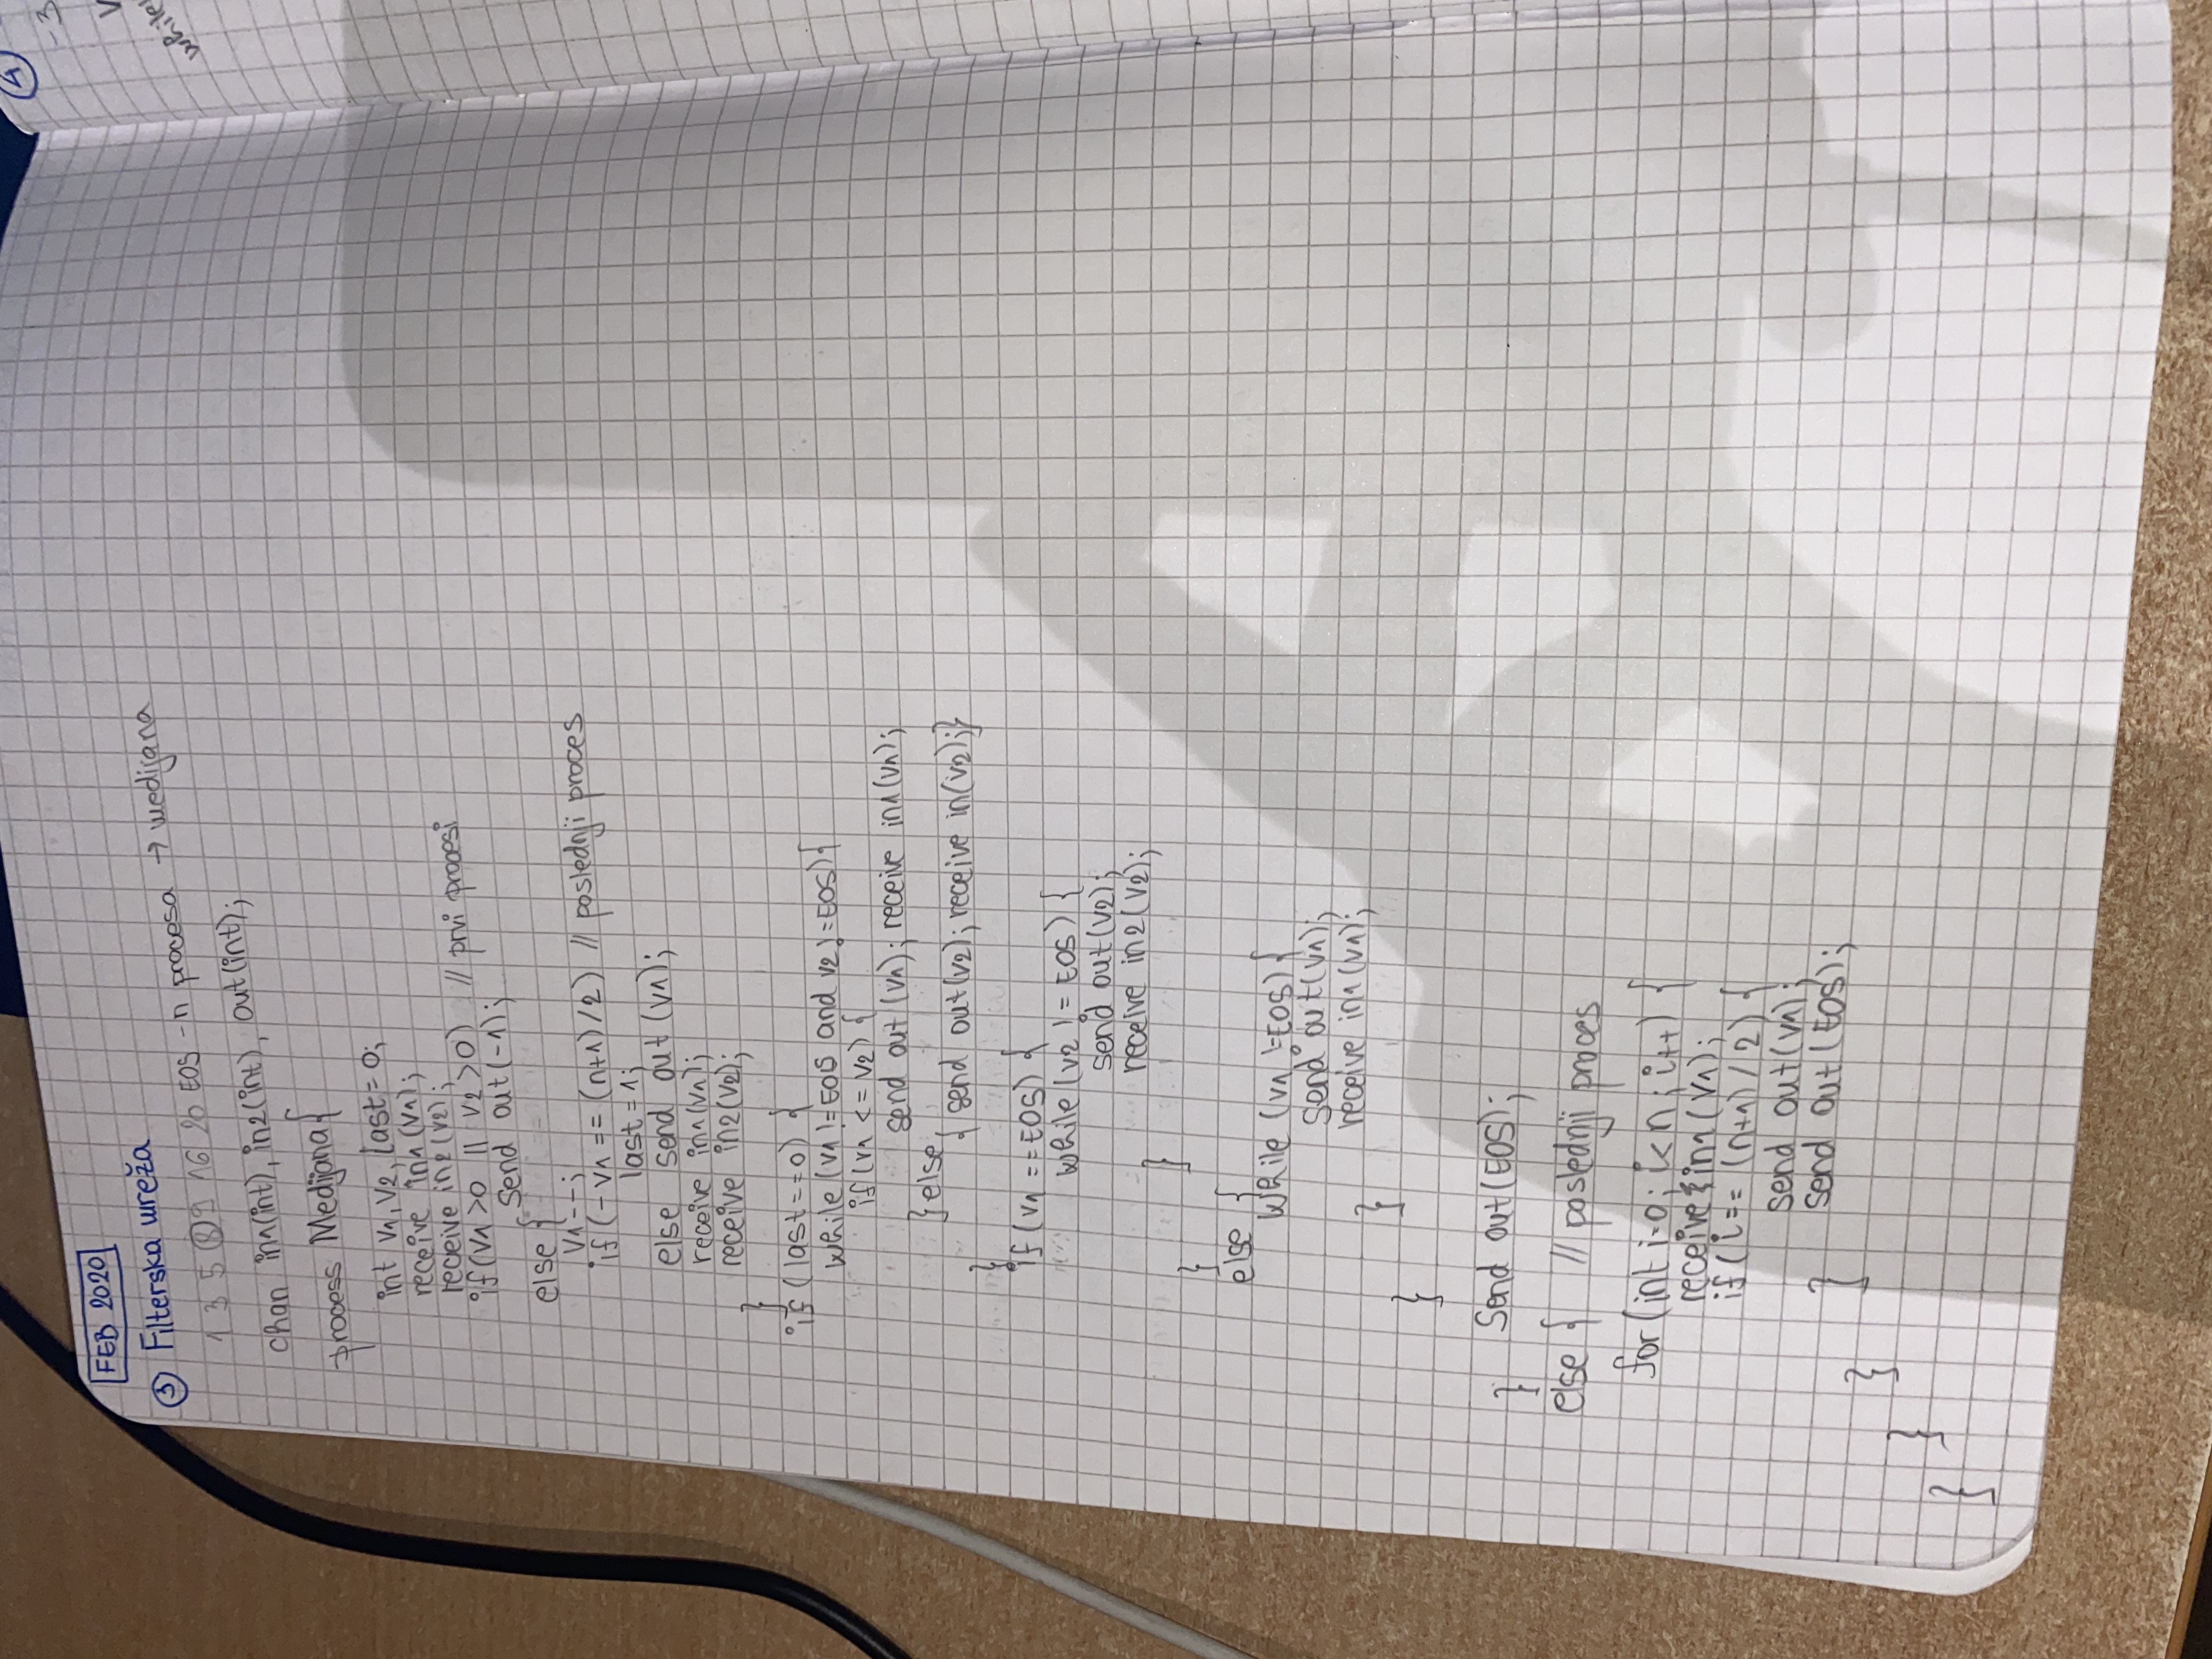 FEB 2020
③ Filterska mreža
1 3 5 ⑧ 9 16 20 EOS - n procesa → medijana
chan in1(int), in2(int), out(int);
process Medijana{
int v1, v2, last = 0;
receive in1(v1);
receive in2(v2);
if(v1 >0 || v2 >0) // prvi procesi
send out(-1);
else {
v1--;
if (-v1 == (n+1)/2) // poslednji proces
last = 1;
else send out (v1);
receive in1(v1);
receive in2(v2);
}
if (last==0) {
while (v1 != EOS and v2 != EOS){
if (v1 <= v2) {
send out (v1); receive in1(v1);
}else
{ send out(v2); receive in(v2);}
}
if (v1 == EOS) {
while (v2 != EOS) {
send out(v2);
receive in2(v2);
}
}
else {
while (v1 != EOS){
send out(v1);
receive in1(v1);
}
}
Send out(EOS);
}
else { // poslednji proces
for(int i=0; i<n; i++) {
receive in1(v1);
if(i == (n+1)/2){
send out(v1);
send out(EOS);
}
}
}
}
④
-3
V
while